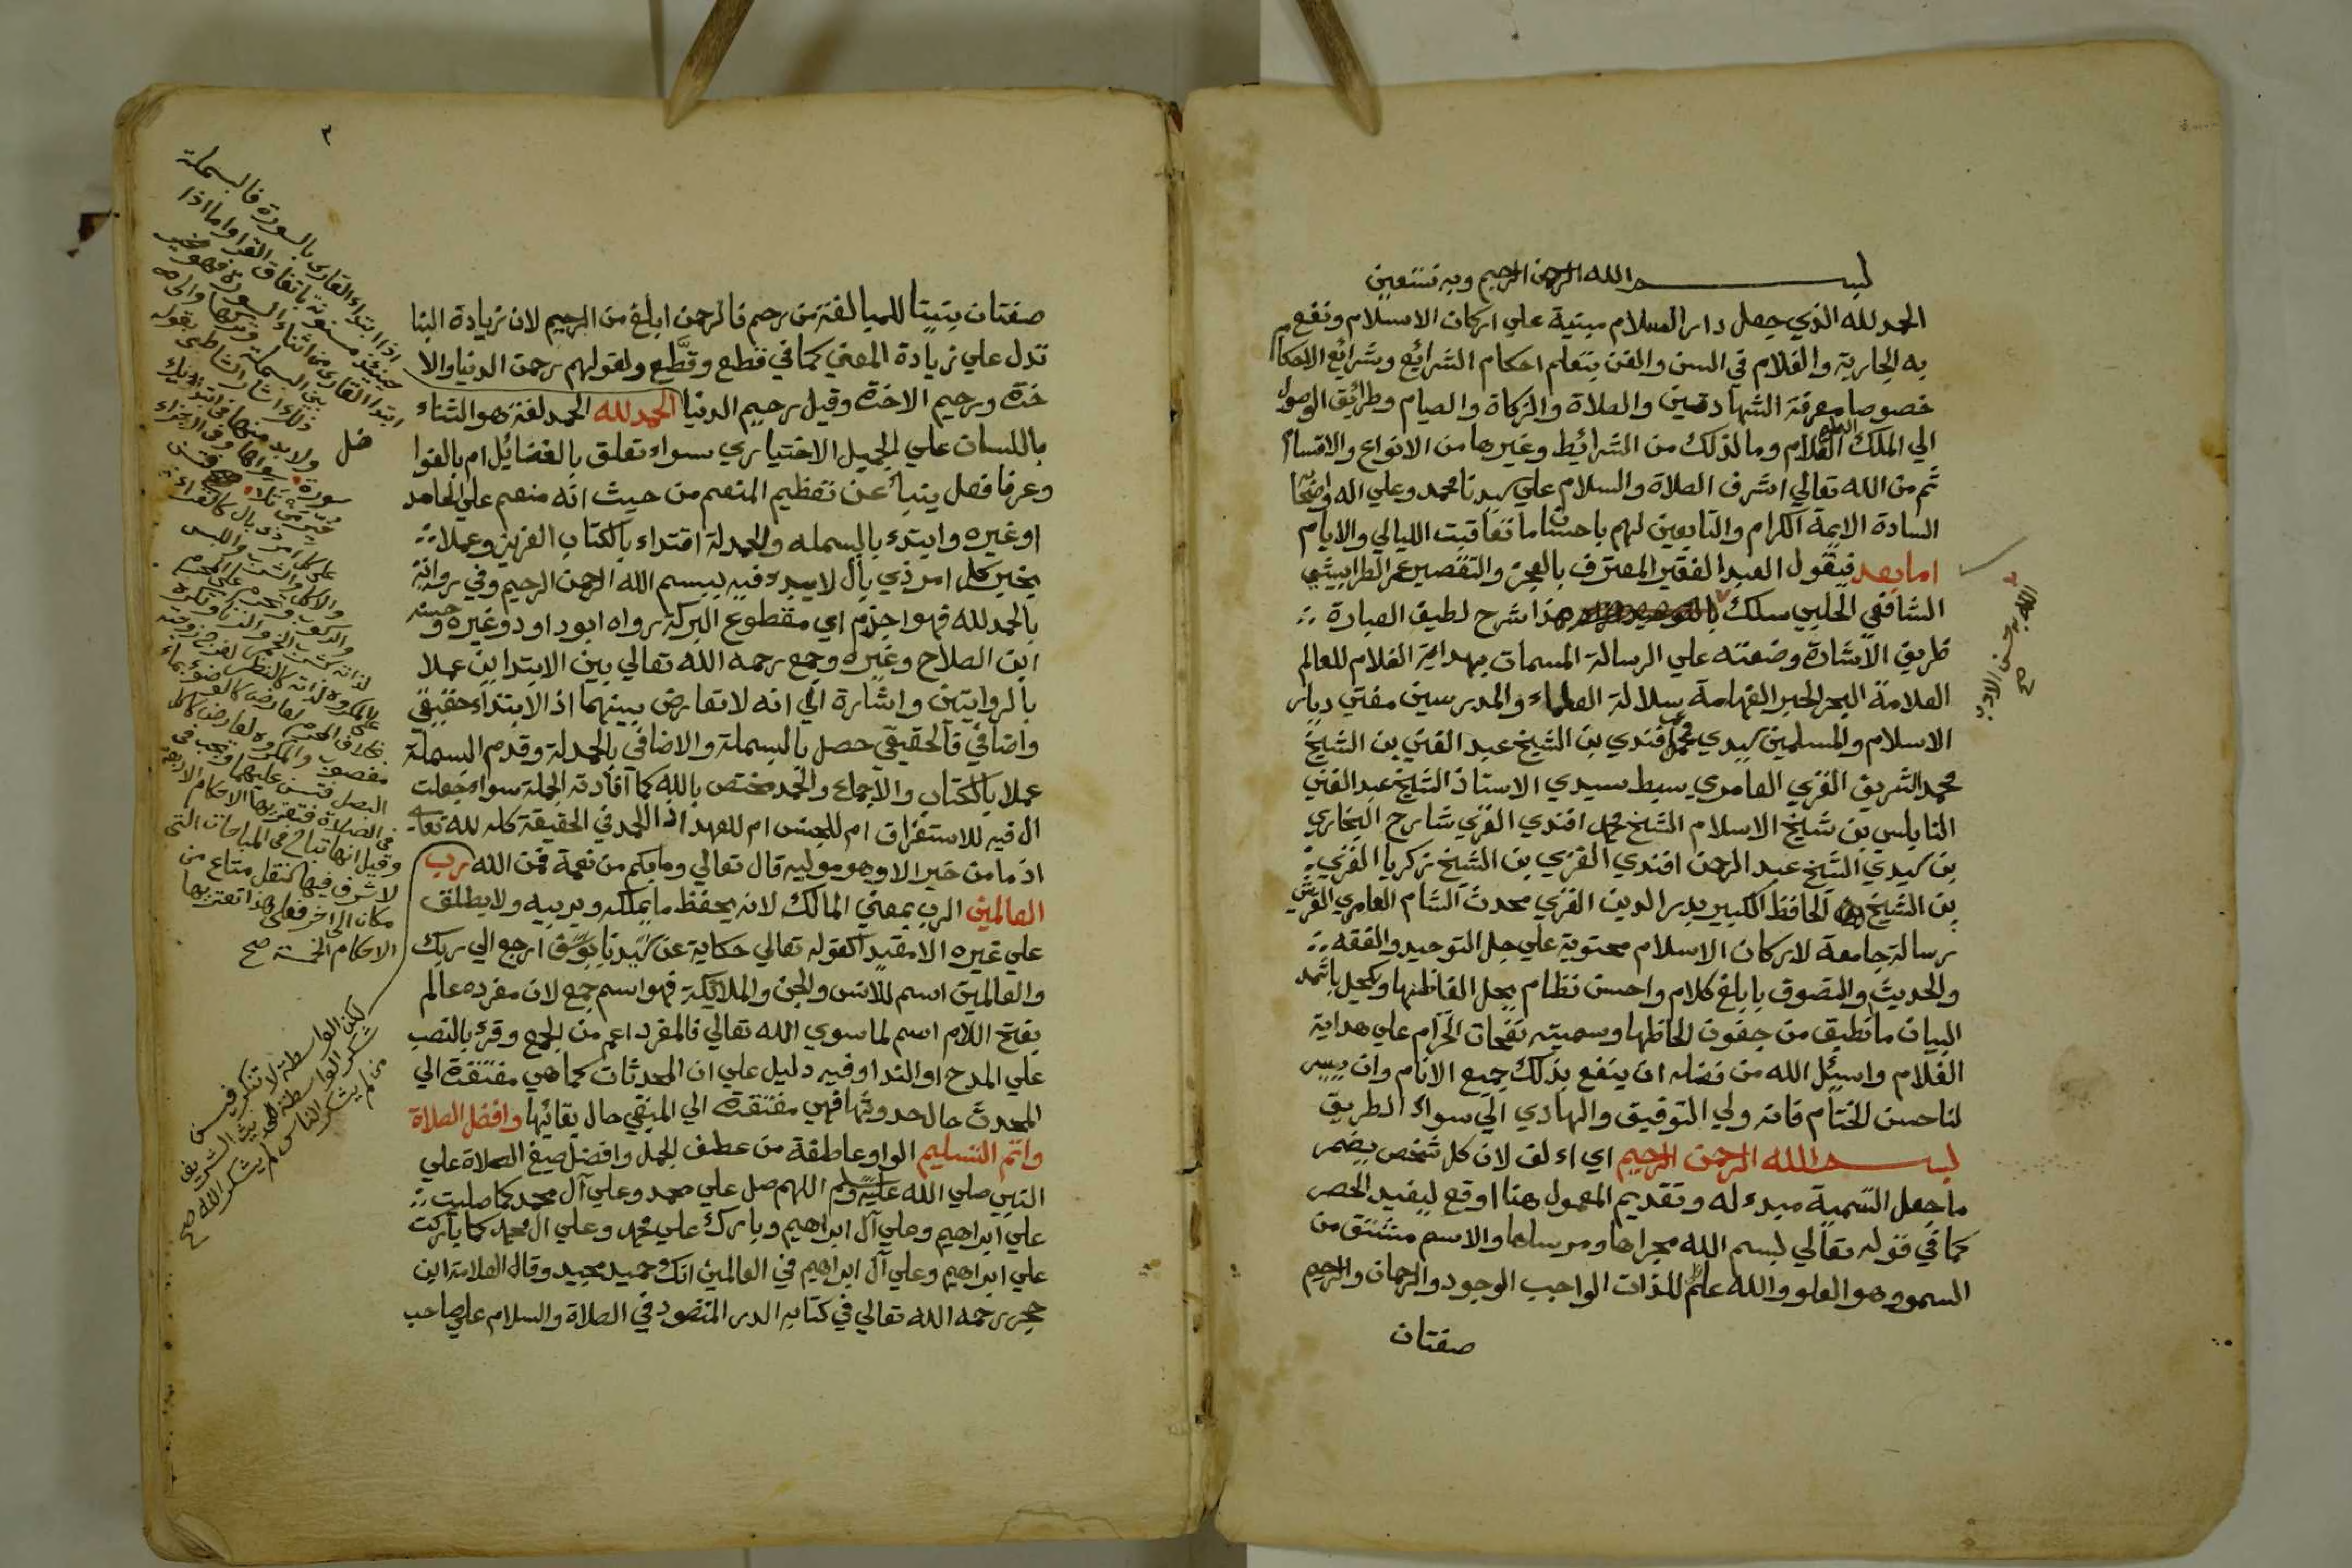 بسم الله الرحمن الرحيم وبه نستعين
الحمد لله الذي جعل دار السلام مبنية علي اركان الاسلام ونفع
به الجارية والغلام في السن والفن بتعلم احكام الشرائع وشرائع الاحكام
خصوصا معرفة الشهادتين والصلاة والزكاة والصيام وطرائق الوصول
الي الملك العلام وما لذلك من الشرائيط وغيرها من الانواع والاقسام
ثم من الله تعالي اشرف الصلاة والسلام علي سيدنا محمد وعلي اله واصحابه
السادة الايمة الكرام والتابعين لهم باحسان ما تعاقبت الليالي والايام
اما بعد فيقول العبد الفقير المعترف بالعجز والتقصير عمر الطرابيشي
الشافعي الحلبي سلك هذا شرح لطيف العبارة
ظريف الاشارة وضعته علي الرسالة المسمات بهداية الغلام للعالم
العلامة البحر الحبر الفهامة سلالة العلماء والمدرسين مفتي ديار
الاسلام والمسلمين سيدي محمد افندي بن الشيخ عبد الغني بن الشيخ
محمد الشريف الغزي العامري سبط سيدي الاستاذ الشيخ عبد الغني
النابلسي بن شيخ الاسلام الشيخ محمد افندي الغزي شارح البخاري
بن سيدي الشيخ عبد الرحمن افندي الغزي بن الشيخ زكريا الغزي
بن الشيخ الحافظ الكبير بدر الدين الغزي محدث الشام العامري القرشي
رسالة جامعة لاركان الاسلام محتوية علي جل التوحيد والفقه
والحديث والتصوف بابلغ كلام واحسن نظام يحل الفاظها ويكحل باثمد
البيان ما نطبق من جفون لحاظها وسميته نفحات الخزام علي هداية
الغلام واسيل الله من فضله ان ينفع بذلك جميع الانام وان ييسر
لنا حسن الختام فانه ولي التوفيق والهادي الي سواء الطريق
بسم الله الرحمن الرحيم اي اءلف لان كل شخص يضمر
ما جعل التسمية مبدء له وتقديم المعمول هنا اوقع ليفيد الحصر
كما في قوله تعالي بسم الله مجراها ومرساها والاسم مشتق من
السمو وهو العلو والله علم للذات الواجب الوجود والرحمان والرحيم
صفتان
صفتان بنيتا للمبالغة من رحم فالرحمن ابلغ من الرحيم لان زيادة البنا
تدل علي زيادة المعني كما في قطع وقطّع ولقولهم رحمن الدنيا والا
خرة ورحيم الاخرة وقيل رحيم الدنيا الحمد لله الحمد لغة هو الثناء
باللسان علي الجميل الاختياري سواء تعلق بالفضائيل ام بالفوا
ضل
وعرفا فعل ينبأ عن تعظيم المنعم من حيث انه منعم علي الحامد
او غيره وابتدء بالبسمله والحمدلة اقتداء بالكتاب العزيز وعملا
بخبر كل امر ذي بال لا يبدء فيه ببسم الله الرحمن الرحيم وفي رواية
بالحمد لله فهو اجذم اي مقطوع البركة رواه ابو داود وغيره وحسنه
ابن الصلاح وغيره وجمع رحمه الله تعالي بين الابتدايين عملا
بالروايتين واشارة الي انه لا تعارض بينهما اذ الابتداء حقيقي
واضافي فالحقيقي حصل بالبسملة والاضافي بالحمدلة وقدم البسملة
عملا بالكتاب والاجماع والحمد مختص بالله كما آفادته الجملة سواء جعلت
ال فيه للاستغراق ام للجنس ام للعهد اذ الحمد في الحقيقة كله لله تعالي
اذ ما من خير الا وهو موليه قال تعالي وما بكم من نعمة فمن الله رب
العالمين الرب بمعني المالك لانه يحفظ ما يملكه ويربيه ولا يطلق
علي غيره الا مقيدا كقوله تعالي حكاية عن سيدنا يوسف ارجع الي ربك
والعالمين اسم للانس والجن والملايكة فهو اسم جمع لان مفرده عالم
بفتح اللام اسم لما سوي الله تعالي فالمفرد اعم من الجمع وقرئ بالنصب
علي المدح او الندا وفيه دليل علي ان المحدثات كما هي مفتقرة الي
المحدث حال حدوثها فهي مفتقرة الي المبقي حال بقائها وافضل الصلاة
واتم التسليم الواو عاطفة من عطف الجمل وافضل صيغ الصلاة علي
النبي صلي الله عليه وسلم اللهم صل علي محمد وعلي آل محمد كما صليت
علي ابراهيم وعلي آل ابراهيم وبارك علي محمد وعلي ال محمد كما باركت
علي ابراهيم وعلي آل ابراهيم في العالمين انك حميد مجيد وقال العلامة ابن
حجر رحمه الله تعالي في كتابه الدر المنضود في الصلاة والسلام علي صاحب
اذا ابتداء القارى بالسورة فالبسملة
حينئذ مسنونة باتفاق القرا واما اذا
ابتدا القارى من اثناء السورة فهو مخير
بين البسملة وتركها والى
ذلك اشار الشاطبى بقوله
ولا بد منها فى ابتدائك
سورة سواها وفى الاجزاء
خير من تلا
لا شرف فيها كنقل متاع من
مكان الى اخر فعلى هذا تعتريها
الاحكام الخمسة صح
لكن الواسطة لا تنكر فيسن
شكر الواسطة للحديث الشريف
من لم يشكر الناس لم يشكر الله صح